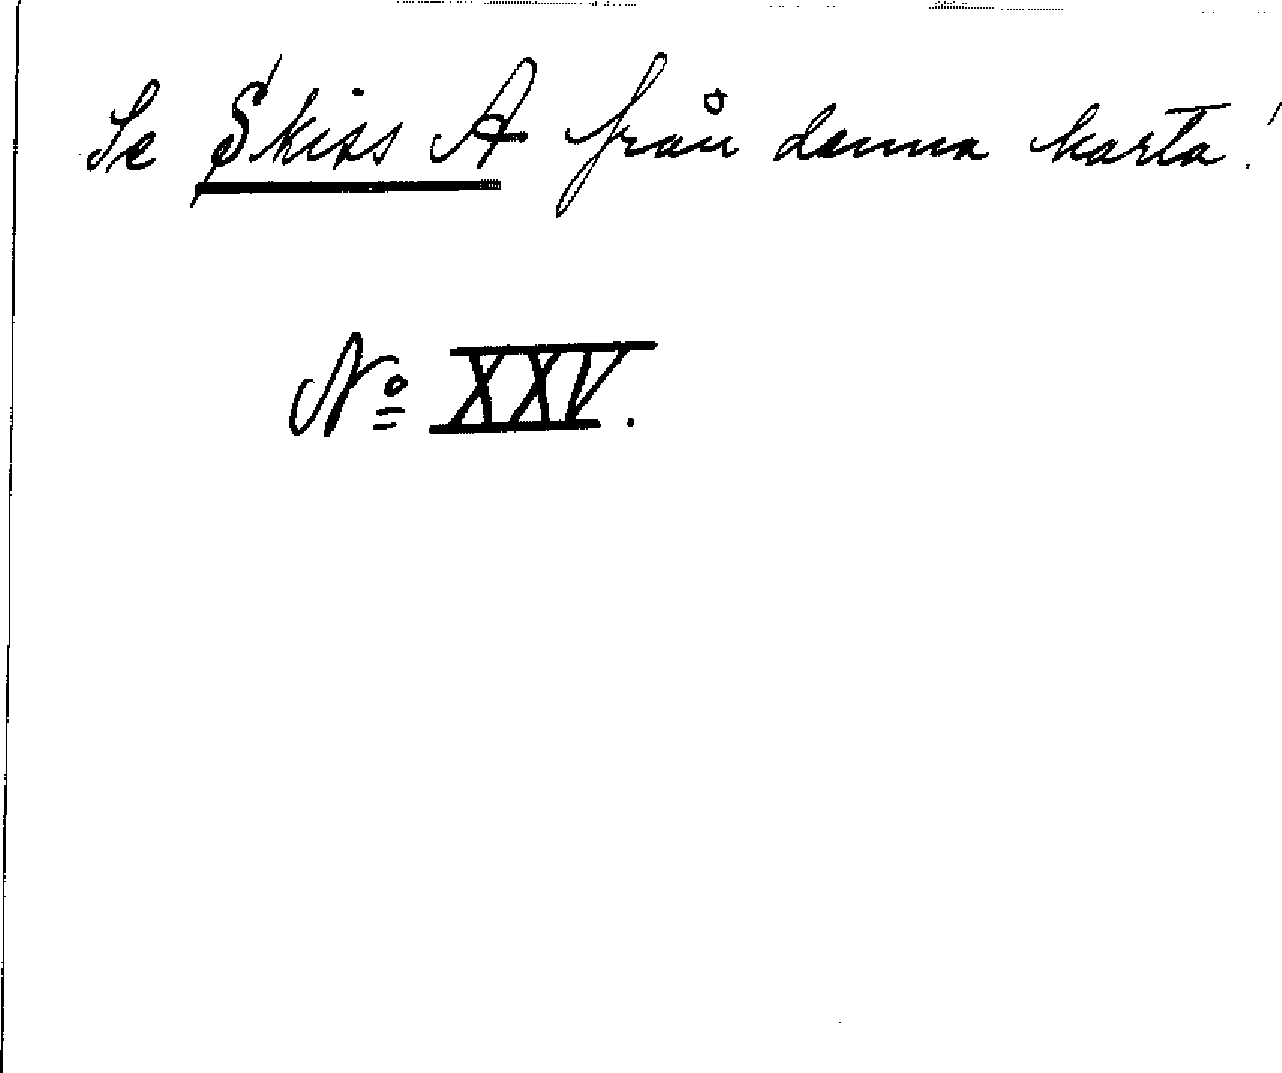 Se Skiss A från denna karta!
No XXV.